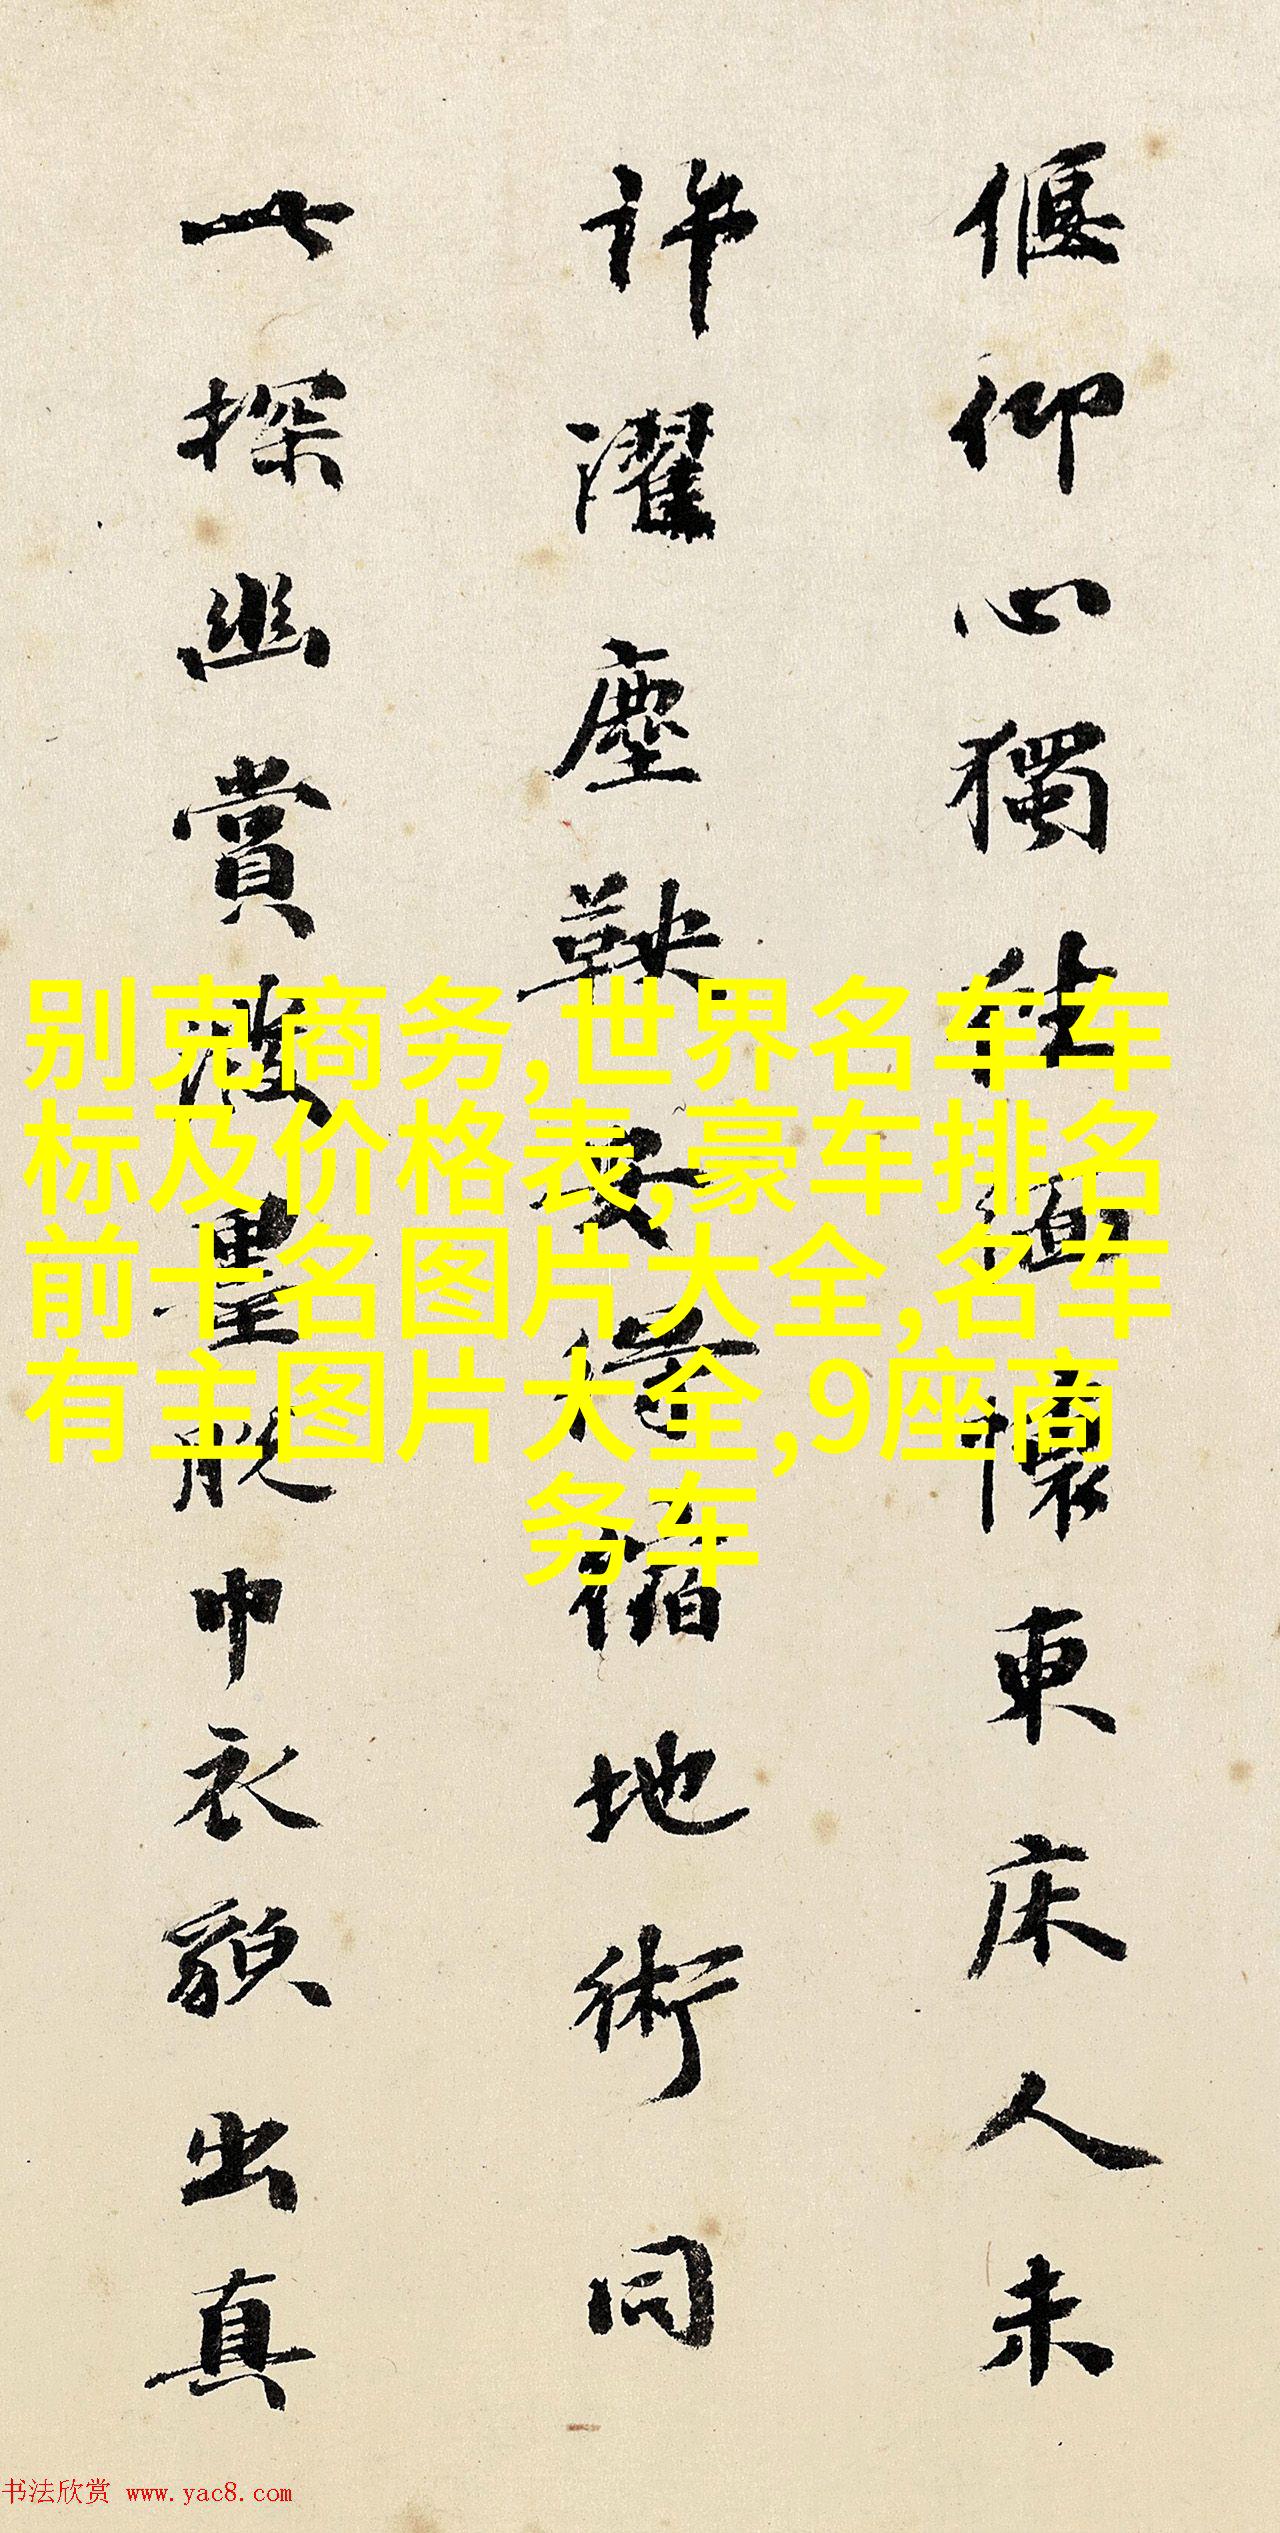 偃仰心獨往緬懷東床人未
許濯塵鞅安得宿地術同
一探幽賞散豊脫巾衣貌出真
别克商务,世界名车车
标及价格表,豪车排名
前十名图片大全,名车
有主图片大全,9座商
务车
书法欣赏 www.yac8.com